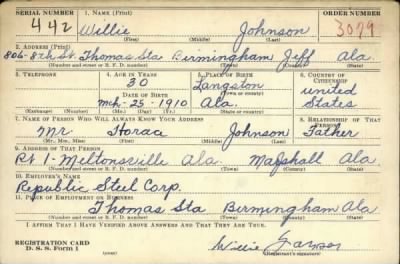 SERIAL NUMBER 1. NAME (Print) ORDER NUMBER
442 Willie Johnson 3079
(First) (Middle) (Last)
2. ADDRESS (Print)
806-8th St. Thomas Sta Birmingham Jeff Ala.
(Number and street or R. F. D. number) (Town) (County) (State)
3. TELEPHONE 4. AGE IN YEARS 5. PLACE OF BIRTH 6. COUNTRY OF CITIZENSHIP
30 Langston United
DATE OF BIRTH (Town or county)
Mch-25-1910 Ala. States
(Exchange) (Number) (Mo.) (Day) (Yr.) (State or country)
7. NAME OF PERSON WHO WILL ALWAYS KNOW YOUR ADDRESS 8. RELATIONSHIP OF THAT PERSON
Mr Horac Johnson Father
(Mr., Mrs., Miss) (First) (Middle) (Last)
9. ADDRESS OF THAT PERSON
Rt 1- Meltonsville Ala. Marshall Ala.
(Number and street or R. F. D. number) (Town) (County) (State)
10. EMPLOYER'S NAME
Republic Steel Corp.
11. PLACE OF EMPLOYMENT OR BUSINESS
Thomas Sta Birmingham Ala
(Number and street or R. F. D. number) (Town) (County) (State)
I AFFIRM THAT I HAVE VERIFIED ABOVE ANSWERS AND THAT THEY ARE TRUE.
REGISTRATION CARD
D. S. S. Form 1 (over) Willie
(Registrant's signature)